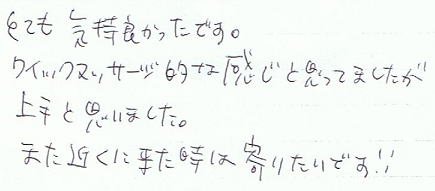 とても気持良かったです。
クイックマッサージ的な感じと思ってましたが
上手と思いました。
また近くに来た時は寄りたいです!!